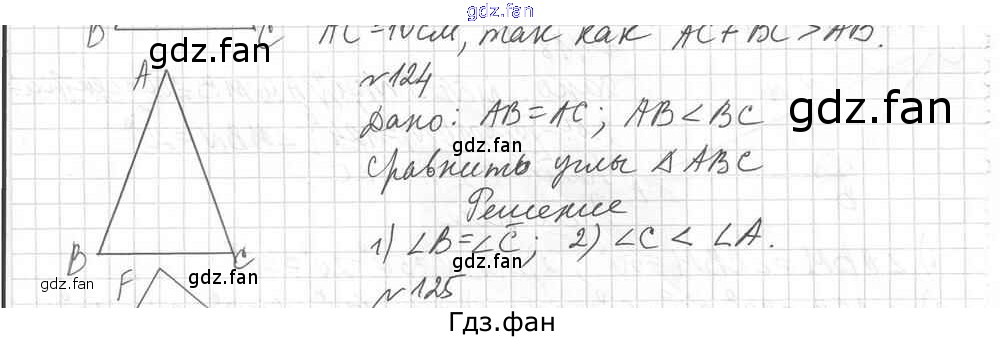 gdz.fan
B C AC=10см, так как AC+BC>AB.
gdz.fan
gdz.fan
A №124
Дано: AB=AC; AB<BC
gdz.fan
gdz.fan
Сравнить углы ΔABC
Решение
1) ∠B=∠C; 2) ∠C < ∠A.
B C
gdz.fan
gdz.fan
gdz.fan
F №125
Гдз.фан